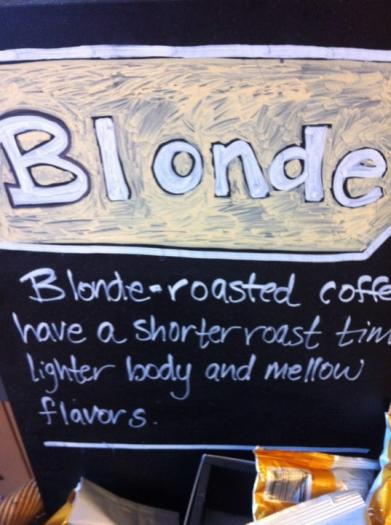 Blonde
Blonde-roasted coffe
have a shorter roast tim
lighter body and mellow
flavors.